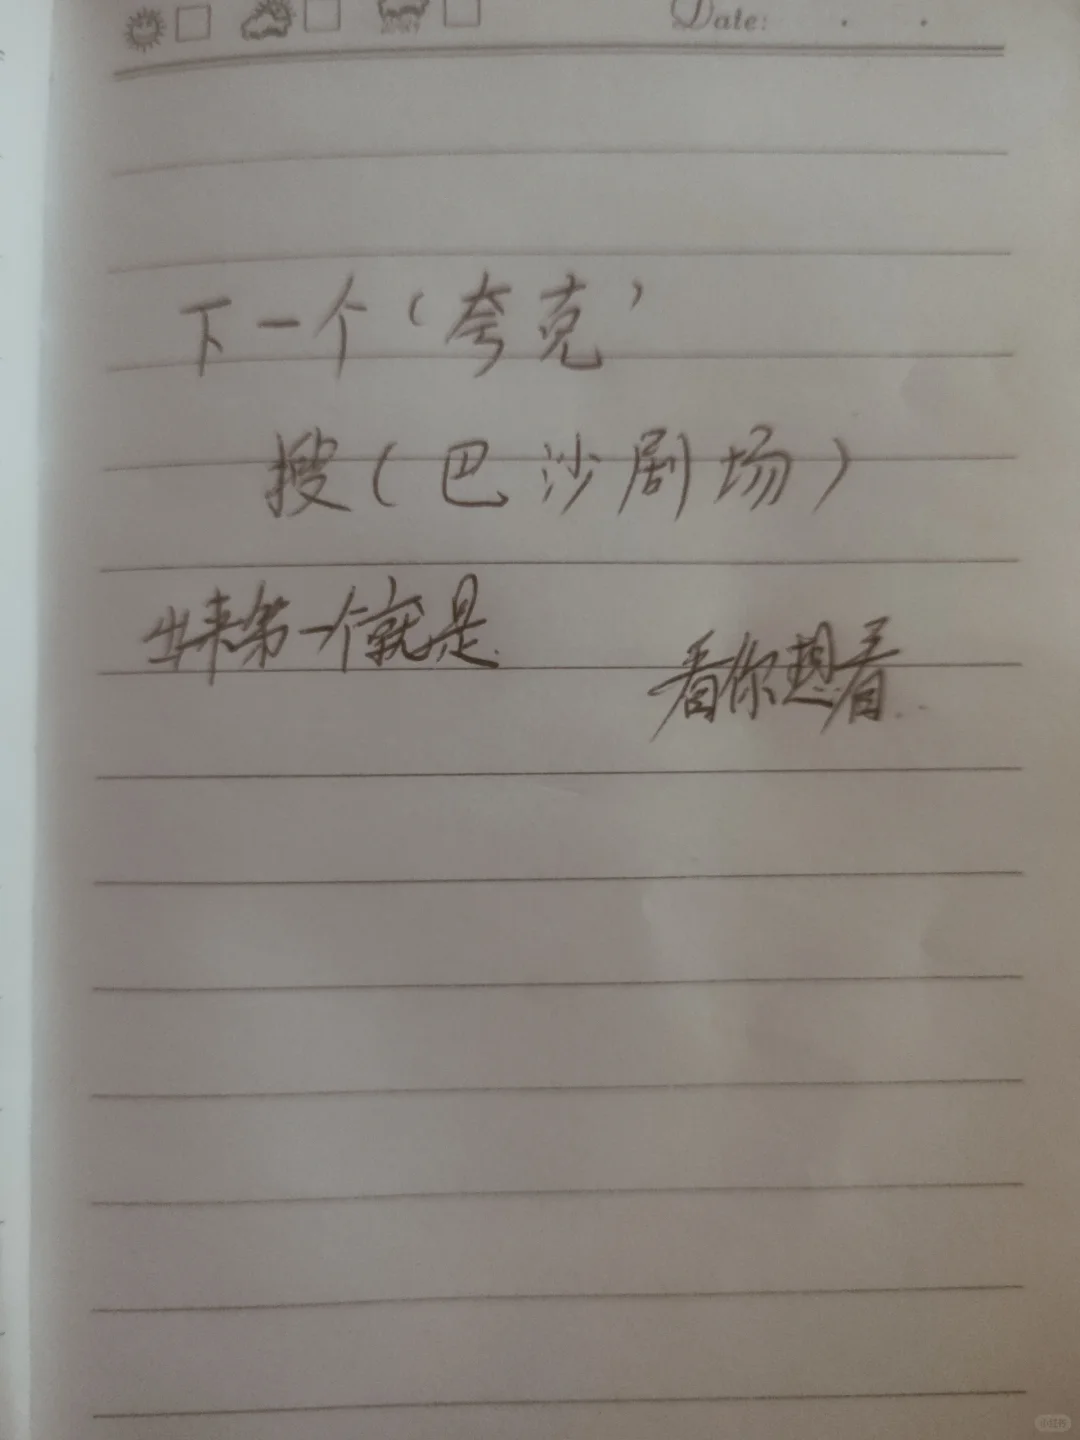 Date:
下一个（夸克）
搜（巴沙剧场）
出来第一个就是
看你想看..
小红书